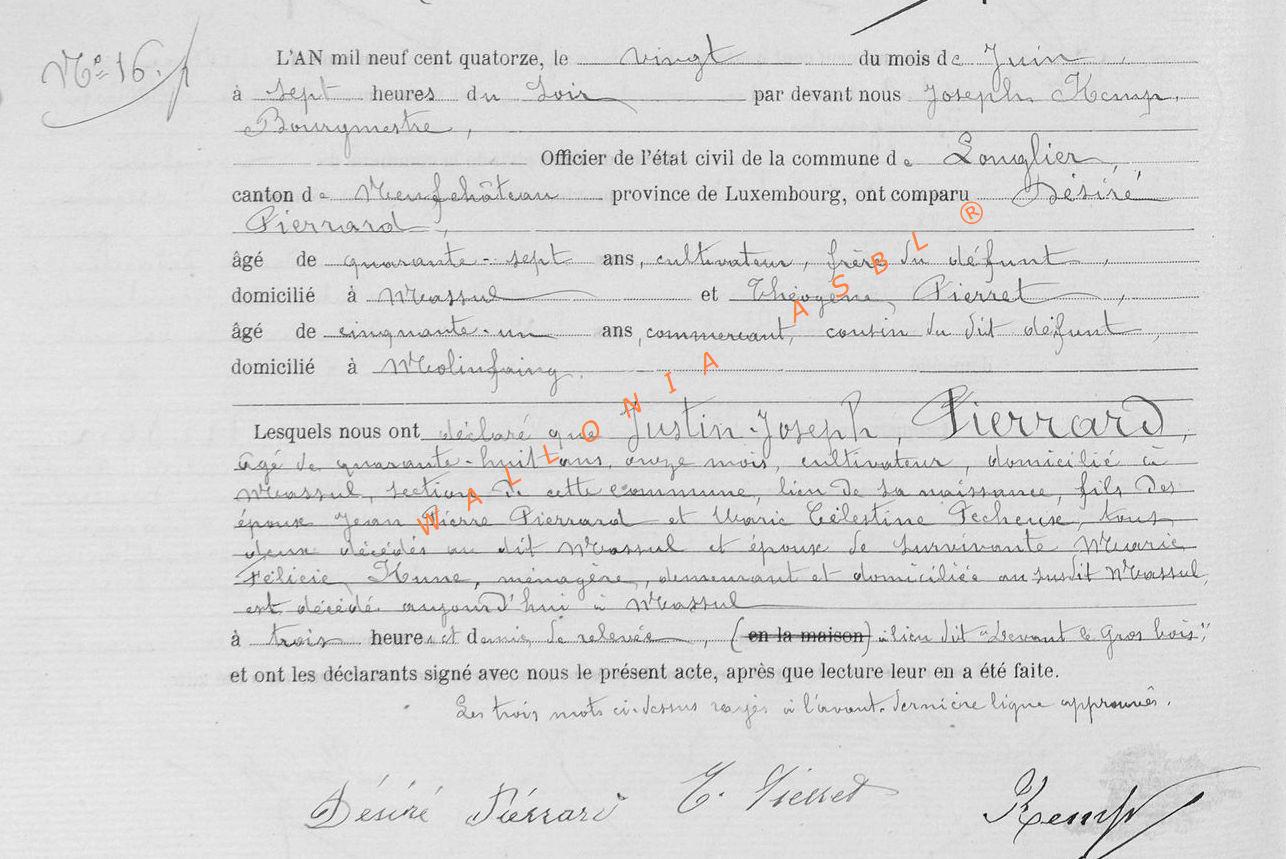 Nº 16.
L'AN mil neuf cent quatorze, le vingt du mois de Juin,
à sept heures du soir par devant nous Joseph Kemp,
Bourgmestre,
Officier de l'état civil de la commune de Longlier,
canton de Neufchâteau province de Luxembourg, ont comparu Désiré
Pierrard,
âgé de quarante-sept ans, cultivateur, frère du défunt,
domicilié à Massul et Théogène Pierret,
âgé de cinquante-un ans, commerçant, cousin du dit défunt,
domicilié à Molinfaing.
Lesquels nous ont déclaré que Justin-Joseph, Pierrard,
âgé de quarante-huit ans, onze mois, cultivateur, domicilié à
Massul, section de cette commune, lieu de sa naissance, fils des
époux Jean Pierre Pierrard et Marie Célestine Pecheux, tous
deux décédés au dit Massul et époux de survivante Marie
Félicie, ménagère, demeurant et domiciliée au susdit Massul,
est décédé aujourd'hui à Massul
à trois heures et demie de relevée, (en la maison) à lieu dit "Devant le Gros bois",
et ont les déclarants signé avec nous le présent acte, après que lecture leur en a été faite.
Les trois mots ci-dessus rayés à l'avant-dernière ligne approuvés.
Désiré Pierrard T. Pierret Kemp
WALLONIA ASBL ®